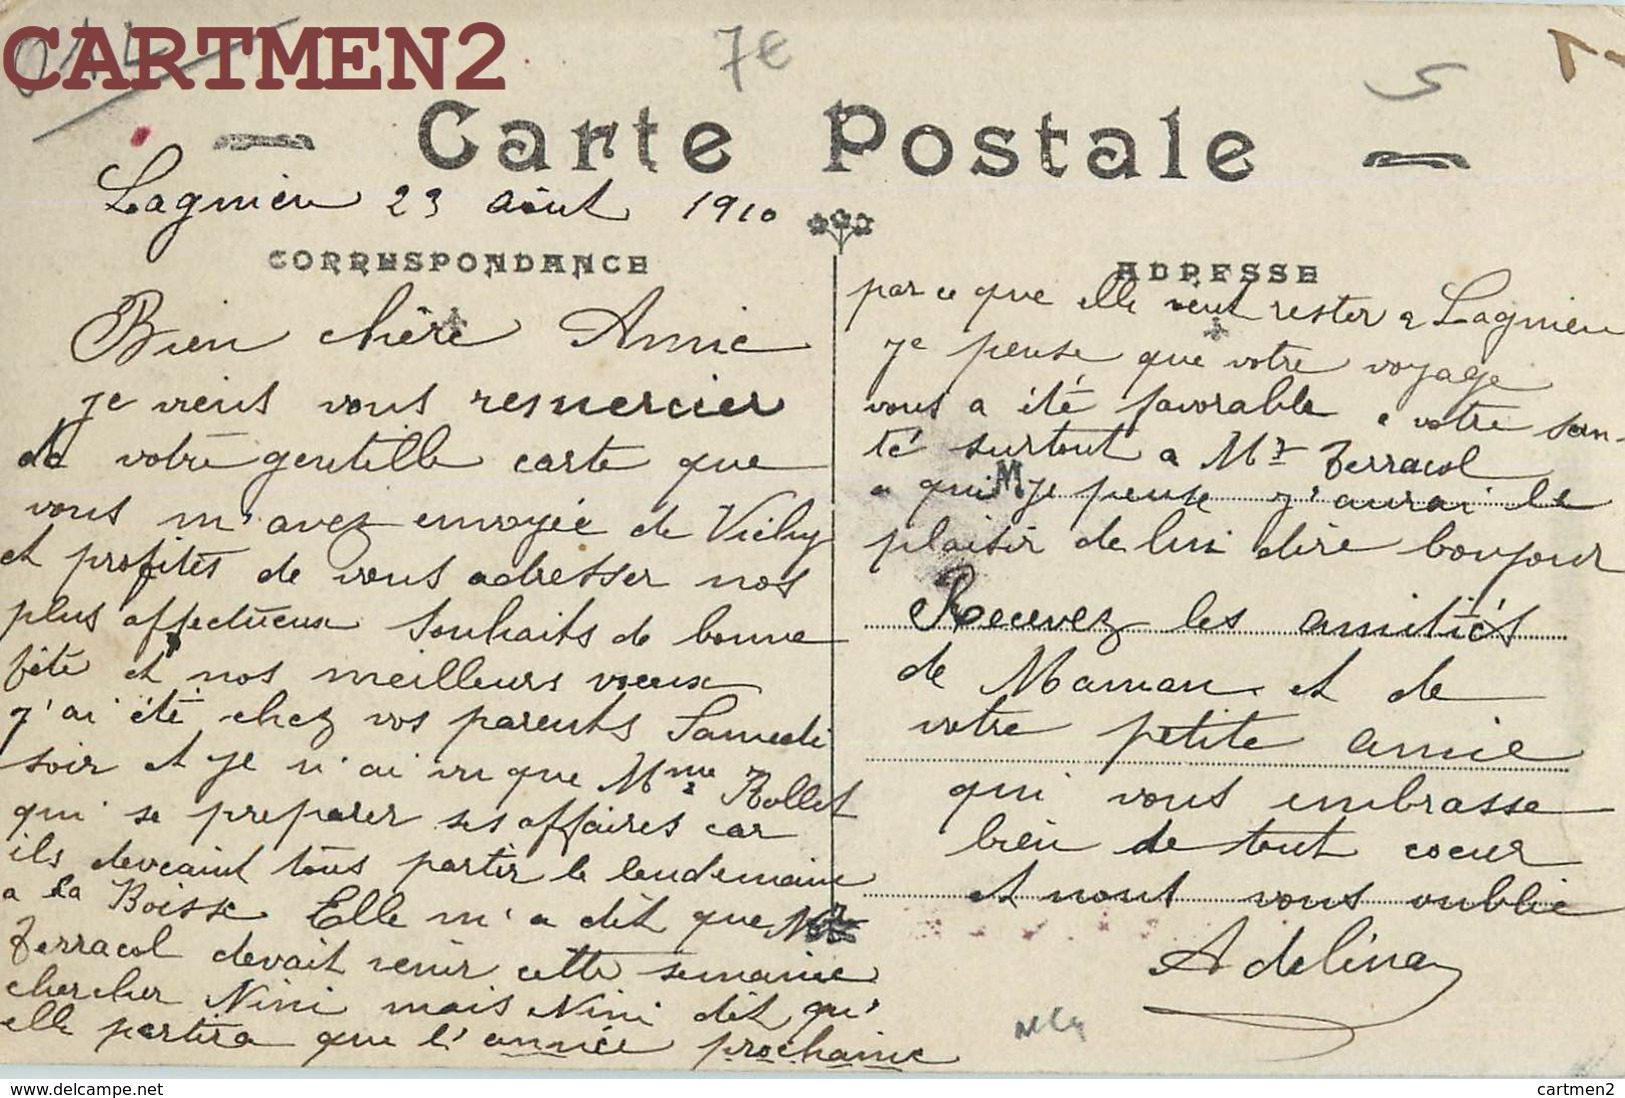 CARTMEN2
7€
5
Carte Postale
Lagnieu 23 Août 1910
CORRESPONDANCE
Bien chère Amie
je viens vous remercier
de votre gentille carte que
vous m'avez envoyée de Vichy
et profites de vous adresser nos
plus affectueux souhaits de bonne
fête et nos meilleurs vœux
j'ai été chez vos parents Samedi
soir et je n'ai vu que Mme Rollet
qui se préparer ses affaires car
ils devaint tous partir le lendemain
a la Boisse Elle m'a dit que Mr
Terracol devait venir cette semaine
chercher Nini mais Nini dit qu'
elle partira que l'année prochaine
ADRESSE
par ce que elle veut rester a Lagnieu
je pense que votre voyage
vous a été favorable a votre san-
té surtout a Mr Terracol
a qui je pense j'aurai le
plaisir de lui dire bonjour
Recevez les amitiés
de Maman et de
votre petite amie
qui vous embrasse
bien de tout coeur
et nont vous oublie
Adelina
delcampe.net
cartmen2